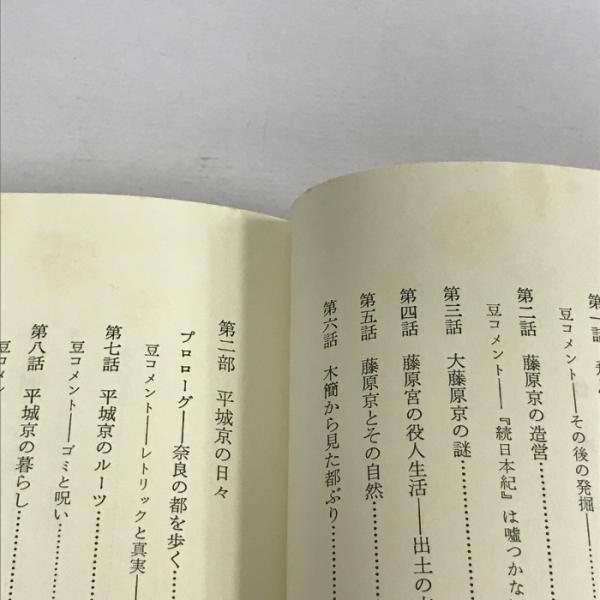 第一話
豆コメント――その後の発掘――
第二話 藤原京の造営……
豆コメント――『続日本紀』は嘘つかな
第三話 大藤原京の謎……
第四話 藤原宮の役人生活――出土の
第五話 藤原京とその自然……
第六話 木簡から見た都ぶり……
第二部 平城京の日々
プロローグ――奈良の都を歩く……
豆コメント――レトリックと真実――
第七話 平城京のルーツ……
豆コメント――ゴミと呪い
第八話 平城京の暮らし……
豆コメン